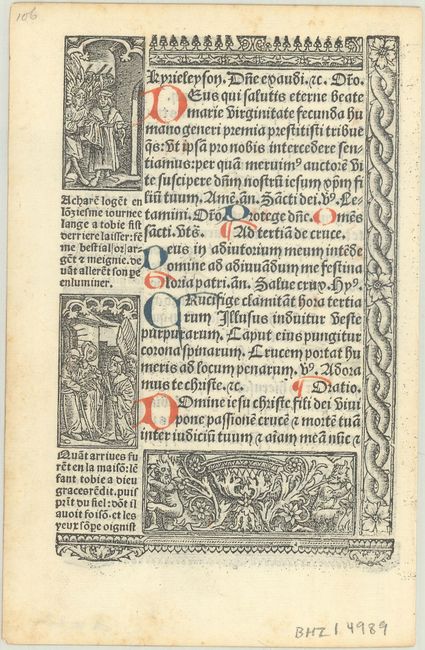 106
Kyrieleyson. Dñe exaudi. ⁊c. Oŕo.
DEus qui salutis eterne beate
marie virginitate fecunda hu
mano generi premia prestitisti tribue
q̃s: vt ipsa pro nobis intercedere sen-
tiamus: per quã meruim⁹ auctorē vi
te suscipere dñm nostrũ iesum xp̃m fi
liũ tuum. Amē. añ. Sācti dei. v̓. Le-
tamini. Oŕo. Protege dñe. Omēs
sācti. vt s̃. Ad tertiā de cruce.
Deus in adiutorium meum intēde
Domine ad adiuvãdum me festina
Gloria patri. añ. Salue crux. Hy⁹.
CRucifige clamitãt hora tertia
rum Illusus induitur veste
purpurarum. Caput eius pungitur
corona spinarum. Crucem portat hu
meris ad locum penarum. v̓. Adora
mus te christe. ⁊c. Oratio.
DOmine iesu christe fili dei viui
pone passionē crucē ⁊ mortē tuã
inter iudiciũ tuum ⁊ aĩam meã nũc ⁊
A charē logēt en
lange a tobie fist
derriere laisser: fē
me bestial/or/ar
gēt ⁊ meignie. de
uāt allerēt son pe
enluminer.
Quāt arriues fu
rēt en la maisõ: lē
fant tobie a dieu
graces rēdit. puis
prīt du fiel: dõt il
auoit foisõ. et les
yeux sõ pe oignist
BHZ 1 4989